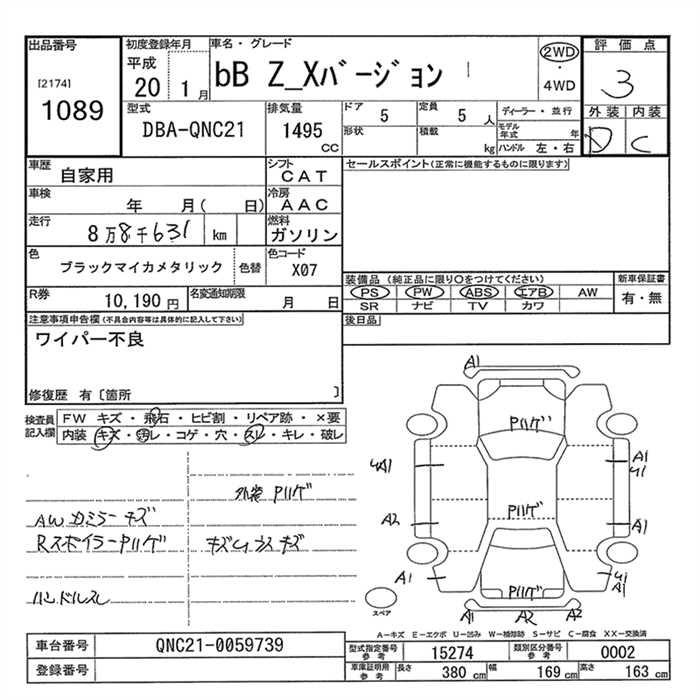 出品番号
[2174]
1089
初度登録年月
平成
20 1月
車名・グレード
bB Z_Xバージョン
2WD
・
4WD
評価点
3
外装 内装
D C
型式
DBA-QNC21
排気量
1495
CC
ドア 5
定員 5 人
形状
積載 kg
ディーラー・並行
モデル年式 年
ハンドル 左・右
車歴 自家用
シフト CAT
車検 年 月( 日)
冷房 AAC
走行 8万8千631 km
燃料 ガソリン
色 ブラックマイカメタリック 色替
色コード X07
R券 10,190 円
名変通知期限 月 日
セールスポイント(正常に機能するものに限ります)
装備品 (純正品に限り○をつけてください)
新車保証書
PS PW ABS エアB AW
有・無
SR ナビ TV カワ
後日品
注意事項申告欄(不具合内容等は具体的に記入して下さい)
ワイパー不良
修復歴 有〔箇所 〕
検査員記入欄
FW キズ・飛石・ヒビ割・リペア跡・×要
内装 キズ・汚レ・コゲ・穴・スレ・キレ・破レ
外装 Pハゲ
AW カミラー キズ
Rスポイラー Pハゲ
キズ
ハンドルスレ
A1
Pハゲ
A1
A1
Pハゲ
A2
A1
A1
A1
Pハゲ
A1 A2 A2
スペア
A－キズ E－エクボ U－凹み W－補修跡 S－サビ C－腐食 XX－交換済
車台番号 QNC21-0059739
登録番号
型式指定番号参考 15274
類別区分番号参考 0002
車庫証明用参考
長さ 380 cm 幅 169 cm 高さ 163 cm